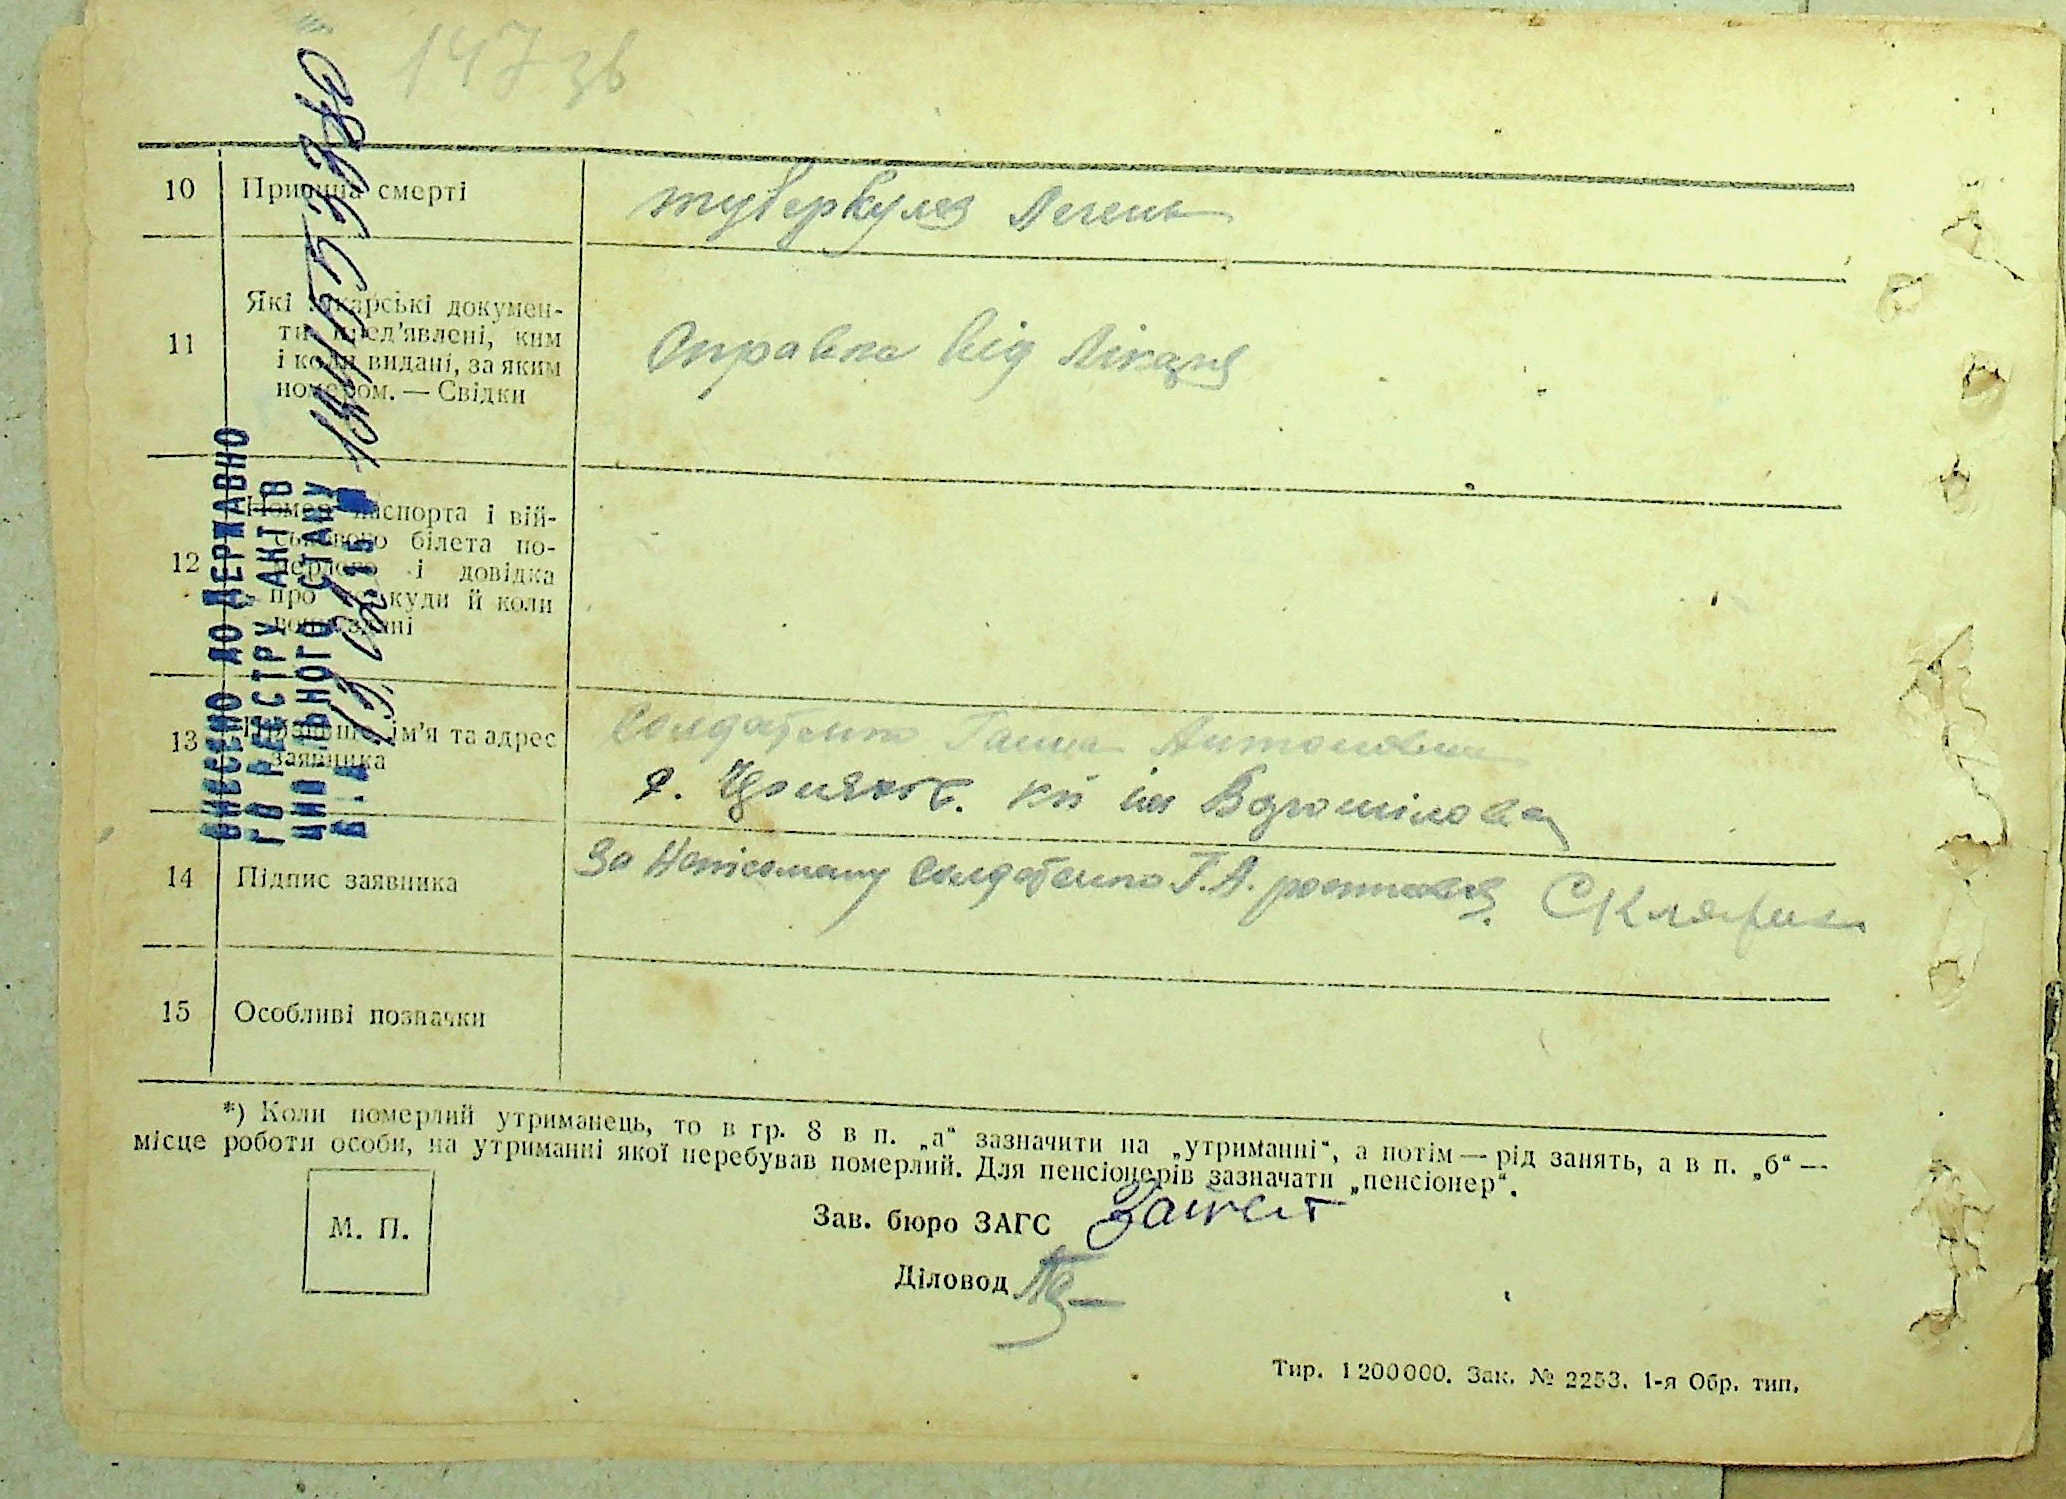 147 зв
10 Причина смерті туберкулез Легень
11 Які лікарські докумен-
ти пред'явлені, ким
і коли видані, за яким
номером. — Свідки
Справка від Лікаря
12 Номер паспорта і вій-
ськового білета по-
мерлого і довідка
про те, куди й коли
вони здані
13 Прізвище, ім'я та адрес
заявника
Солдатенко Ганна Антоновна
с. кп ім Ворошілова
14 Підпис заявника За Солдатенко Г. А.
15 Особливі позначки
*) Коли померлий утриманець, то в гр. 8 в п. „а“ зазначити на „утриманні“, а потім — рід занять, а в п. „б“ —
місце роботи особи, на утриманні якої перебував померлий. Для пенсіонерів зазначати „пенсіонер“.
М. П.
Зав. бюро ЗАГС
Діловод
Тир. 1 200 000. Зак. № 2253. 1-я Обр. тип.
ВНЕСЕНО ДО ДЕРЖАВНО
ГО РЕЄСТРУ АКТІВ
ЦИВІЛЬНОГО СТАНУ